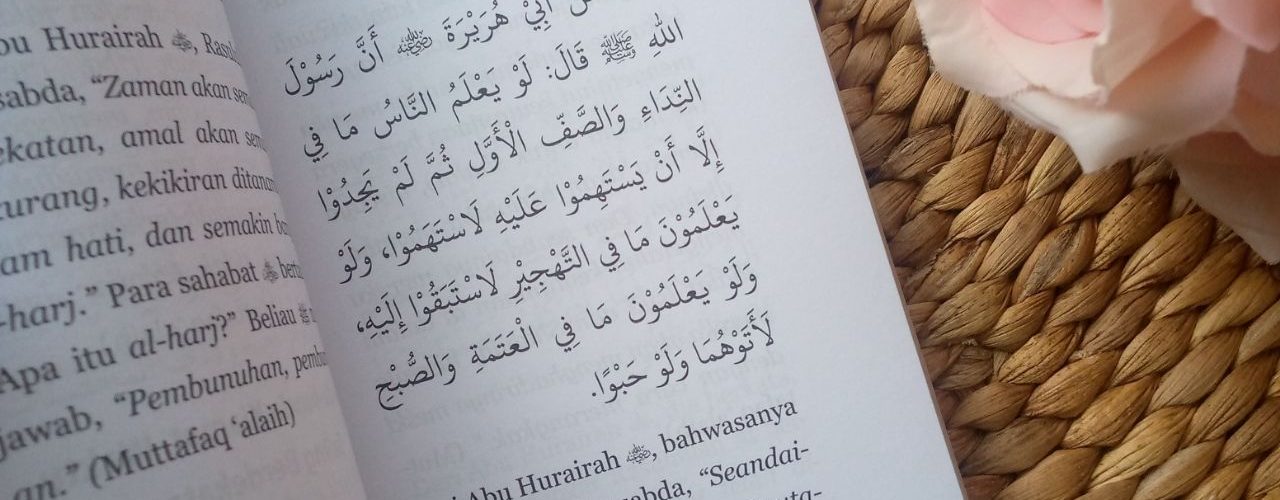 Hurairah ﷺ,
sabda, “Zaman akan
amal akan
kekikiran
hati, dan semakin
-harj.” Para sahabat ﷺ
Apa itu al-harj?” Beliau ﷺ
jawab, “Pembunuhan,
an.” (Muttafaq ‘alaih)
أَبِيْ هُرَيْرَةَ ﵁ أَنَّ رَسُوْلَ
اللهِ ﷺ قَالَ: لَوْ يَعْلَمُ النَّاسُ مَا فِي
النِّدَاءِ وَالصَّفِّ الْأَوَّلِ ثُمَّ لَمْ يَجِدُوْا
إِلَّا أَنْ يَسْتَهِمُوْا عَلَيْهِ لَاسْتَهَمُوْا، وَلَوْ
يَعْلَمُوْنَ مَا فِي التَّهْجِيْرِ لَاسْتَبَقُوْا إِلَيْهِ،
وَلَوْ يَعْلَمُوْنَ مَا فِي الْعَتَمَةِ وَالصُّبْحِ
لَأَتَوْهُمَا وَلَوْ حَبْوًا.
Abu Hurairah ﵁, bahwasanya
sabda, “Seandai-